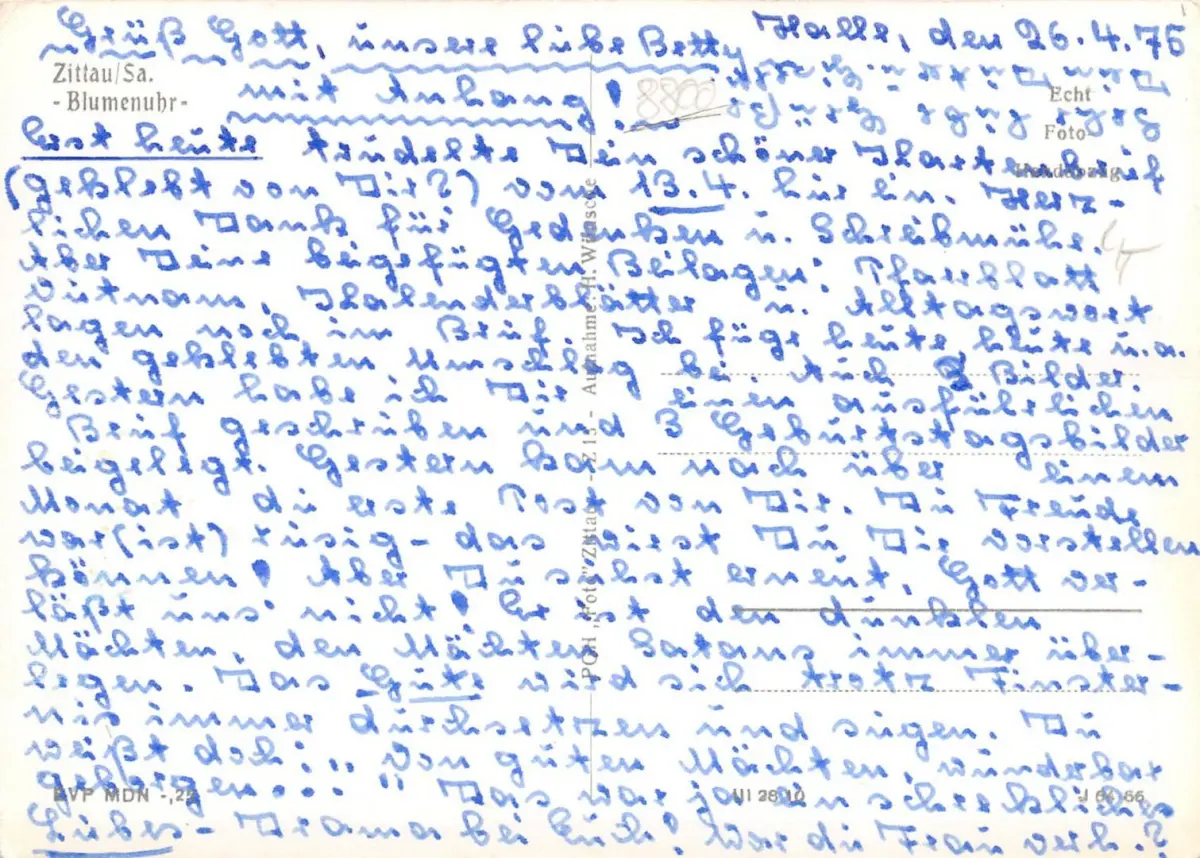 Halle, den 26.4.76
Grüß Gott, unsere liebe Betty
mit Anhang!
8800
Zittau/Sa.
- Blumenuhr -
Echt
Foto
Handabzug
Erst heute trudelte Dein schöner Kartenbrief
(geklebt von Dir?) vom 13.4. hier ein. Herz-
lichen Dank für Gedenken u. Schreibmühe.
Aber Deine beigefügten Beilagen: Pfarrblatt
Vietnam, Kalenderblätter u. Alltagswort
lagen noch im Brief. Ich füge heute heute u.a.
den geklebten Umschlag bei. Auch Bilder.
Gestern habe ich Dir einen ausführlichen
Brief geschrieben und 3 Geburtstagsbilder
beigelegt. Gestern kam nach über einem
Monat die erste Post von Dir. Die Freude
war (ist) riesig - das wirst Du Dir vorstellen
können! Aber Du siehst erneut, Gott ver-
läßt uns nicht! Er ist den dunklen
Mächten, den Mächten Satans immer über-
legen. Das Gute wird sich trotz Finster-
nis immer durchsetzen und siegen. Du
weißt doch: „Von guten Mächten, wunderbar
geborgen...." Das war ja ein schreckliches
Liebes-Drama bei Euch! War die Frau verh.?
PGH „Foto" Zittau - Z 15 - Aufnahme: H.
EVP MDN -,25